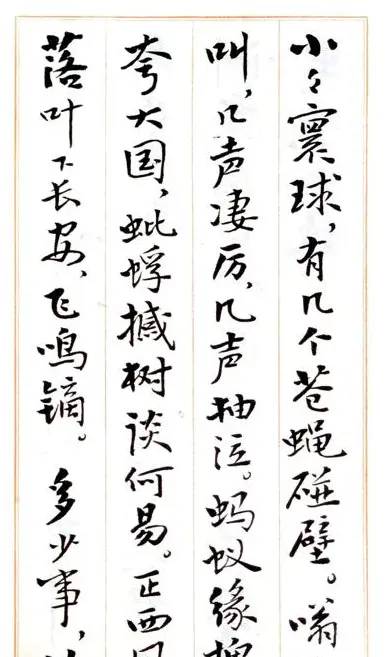 小々寰球，有几个苍蝇碰壁。嗡
叫，几声凄厉，几声抽泣。蚂蚁缘
夸大国，蚍蜉撼树谈何易。正西
落叶下长安，飞鸣镝。多少事，